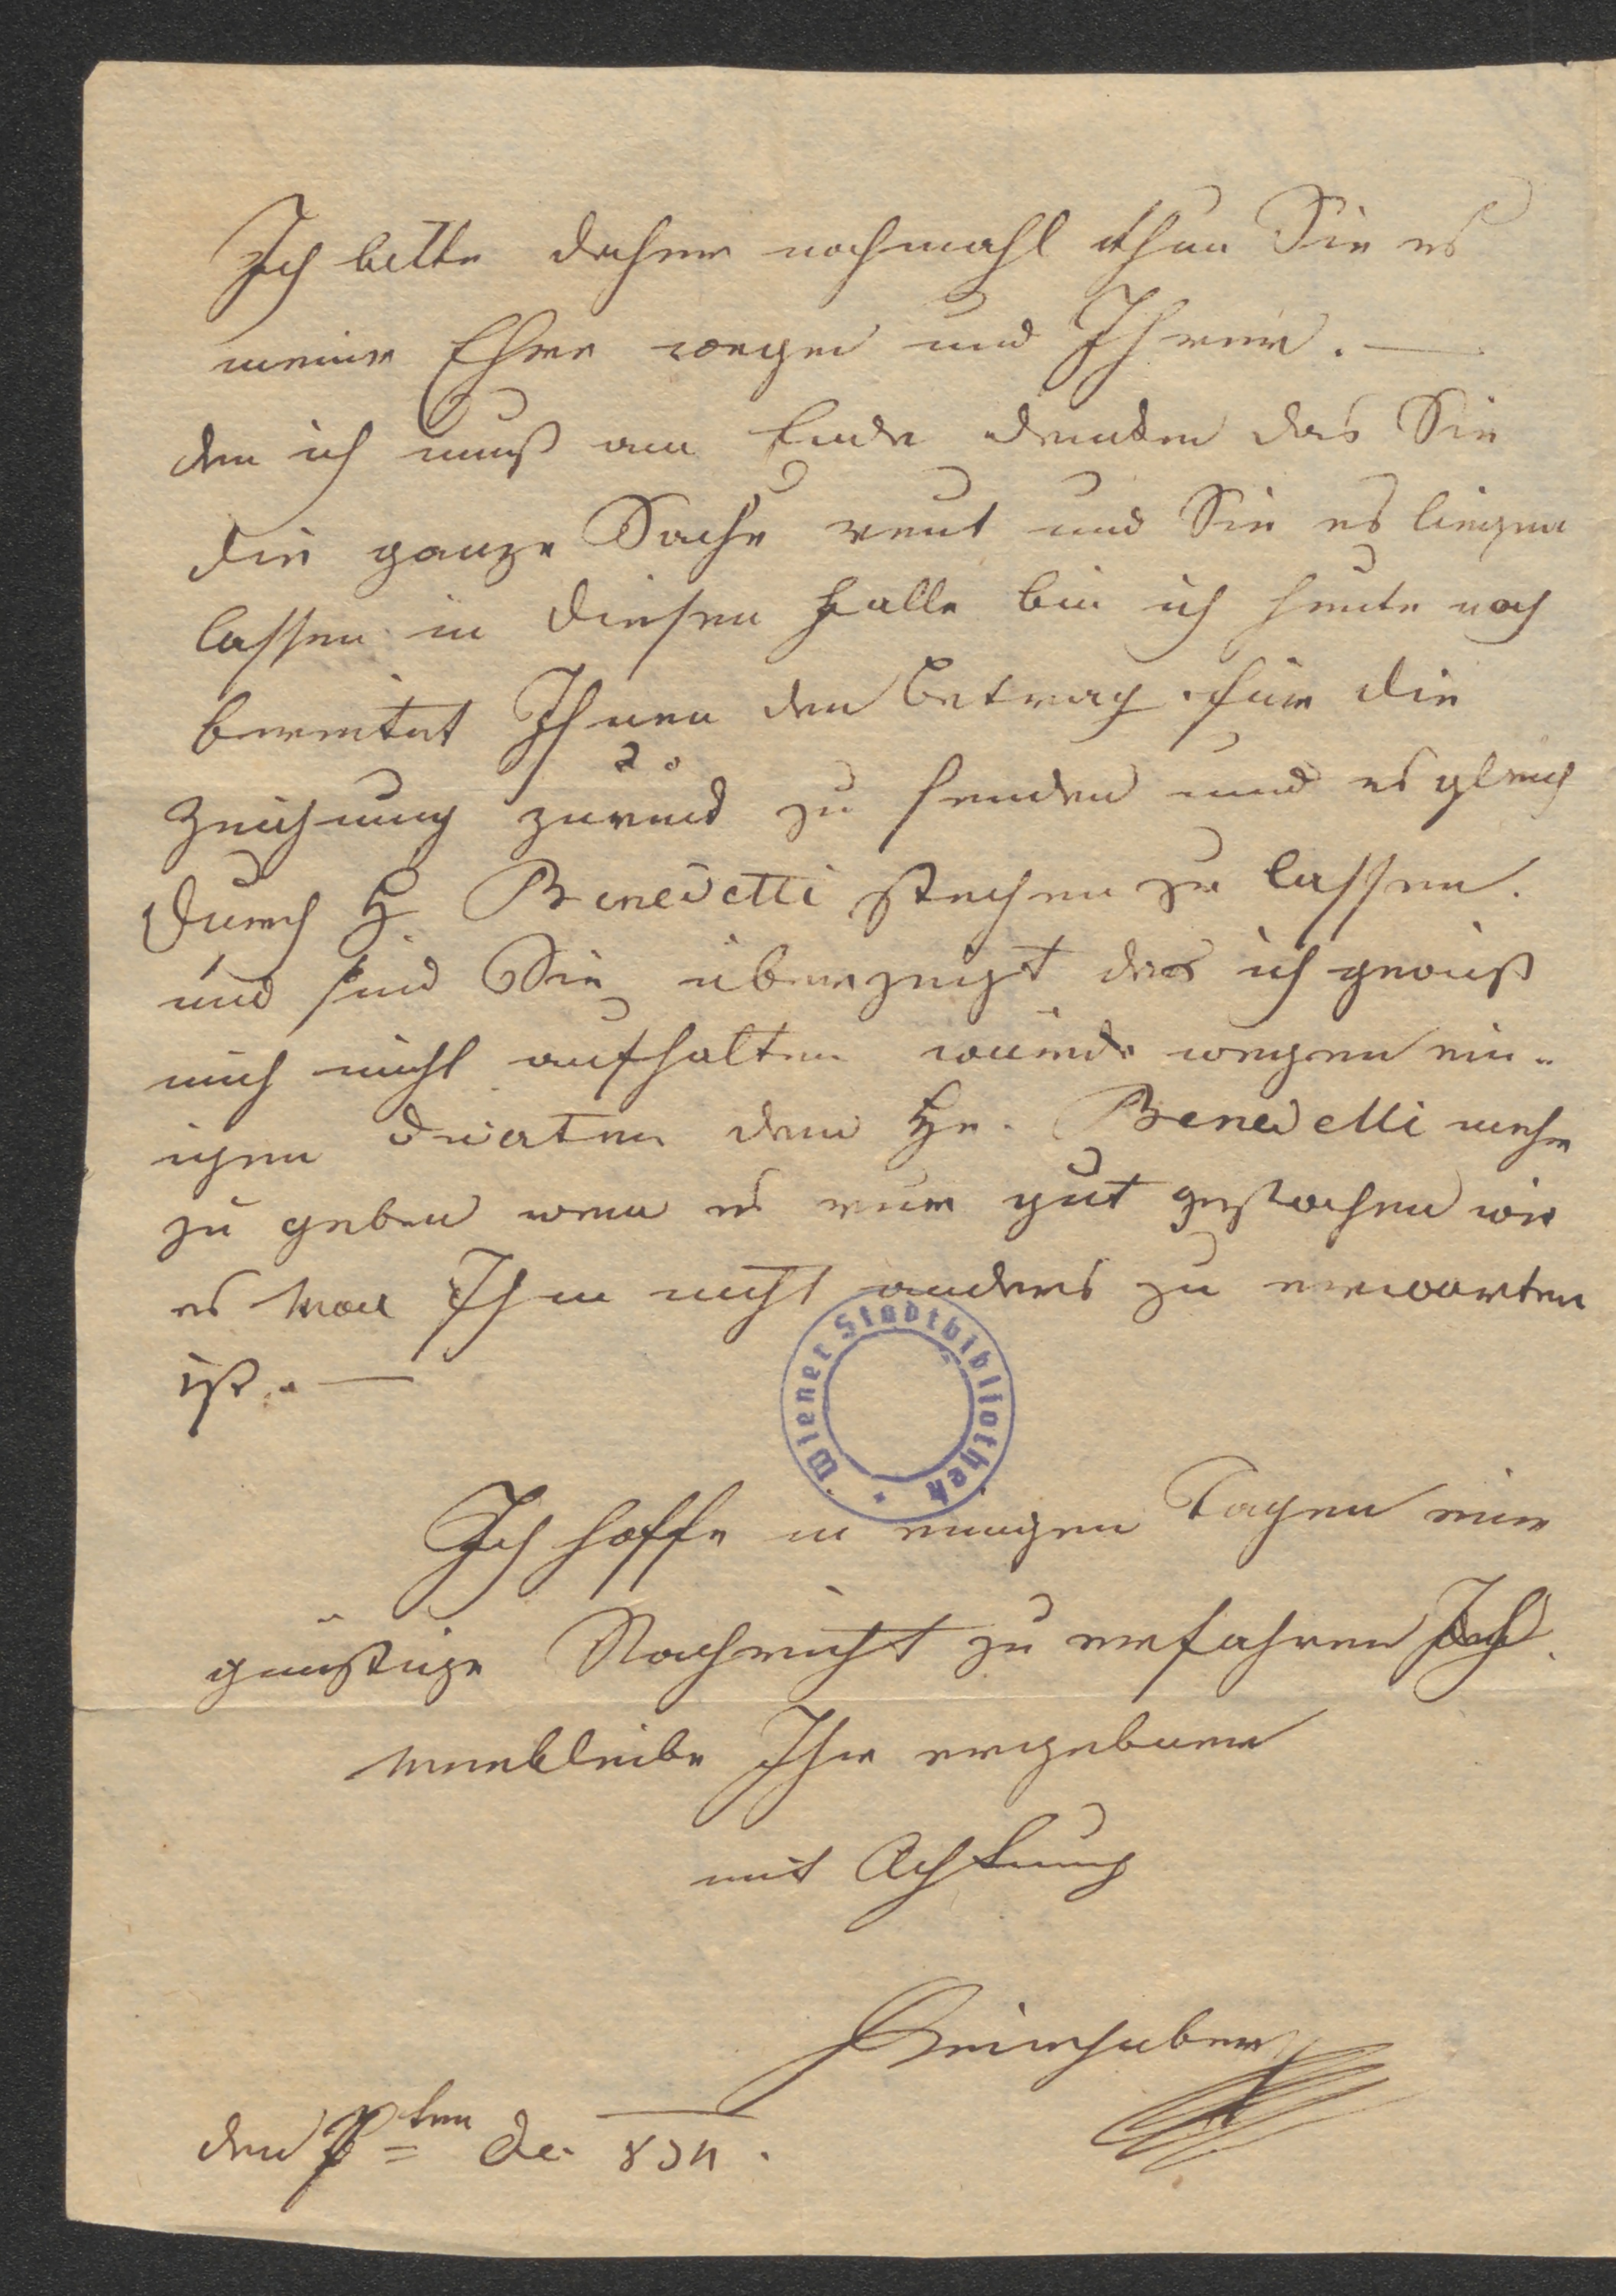 Ich bitte daher nochmahl thun Sie es
meine Ehre wegen und Ihrer. —
den ich muß am Ende denken das Sie
die ganze Sache reut und Sie es liegen
lassen in diesen Falle bin ich heute noch
bereitet Ihnen den Betrag für die
Zeichnung zurück zu senden und es gleich
durch H Benedetti stechen zu lassen.
und sind Sie überzeugt das ich gewiß
mich nicht aufhalten würde wegen ein-
igen Ducaten dem Hr. Benedetti mehr
zu geben wen es nur gut gestochen wie
es von Ihm nicht anders zu erwarten
ist. —
Wiener Stadtbibliothek
Ich hoffe in einigen Tagen eine
günstige Nachricht zu erfahren Ich
verbleibe Ihr ergebener
mit Achtung
den ten De 834.